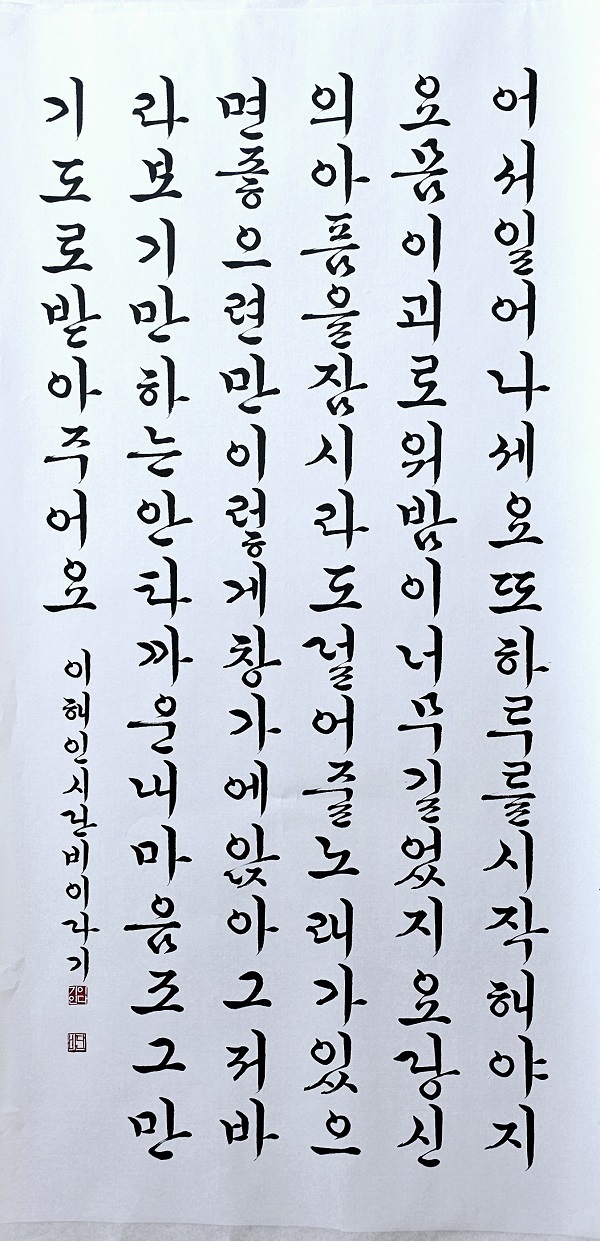 어서일어나세요또하루를시작해야지
요몸이괴로워밤이너무길었지요당신
의아픔을잠시라도덜어줄노래가있으
면좋으련만이렇게창가에앉아그저바
라보기만하는안타까운내마음조그만
기도로받아주어요
이해인시단비이다기